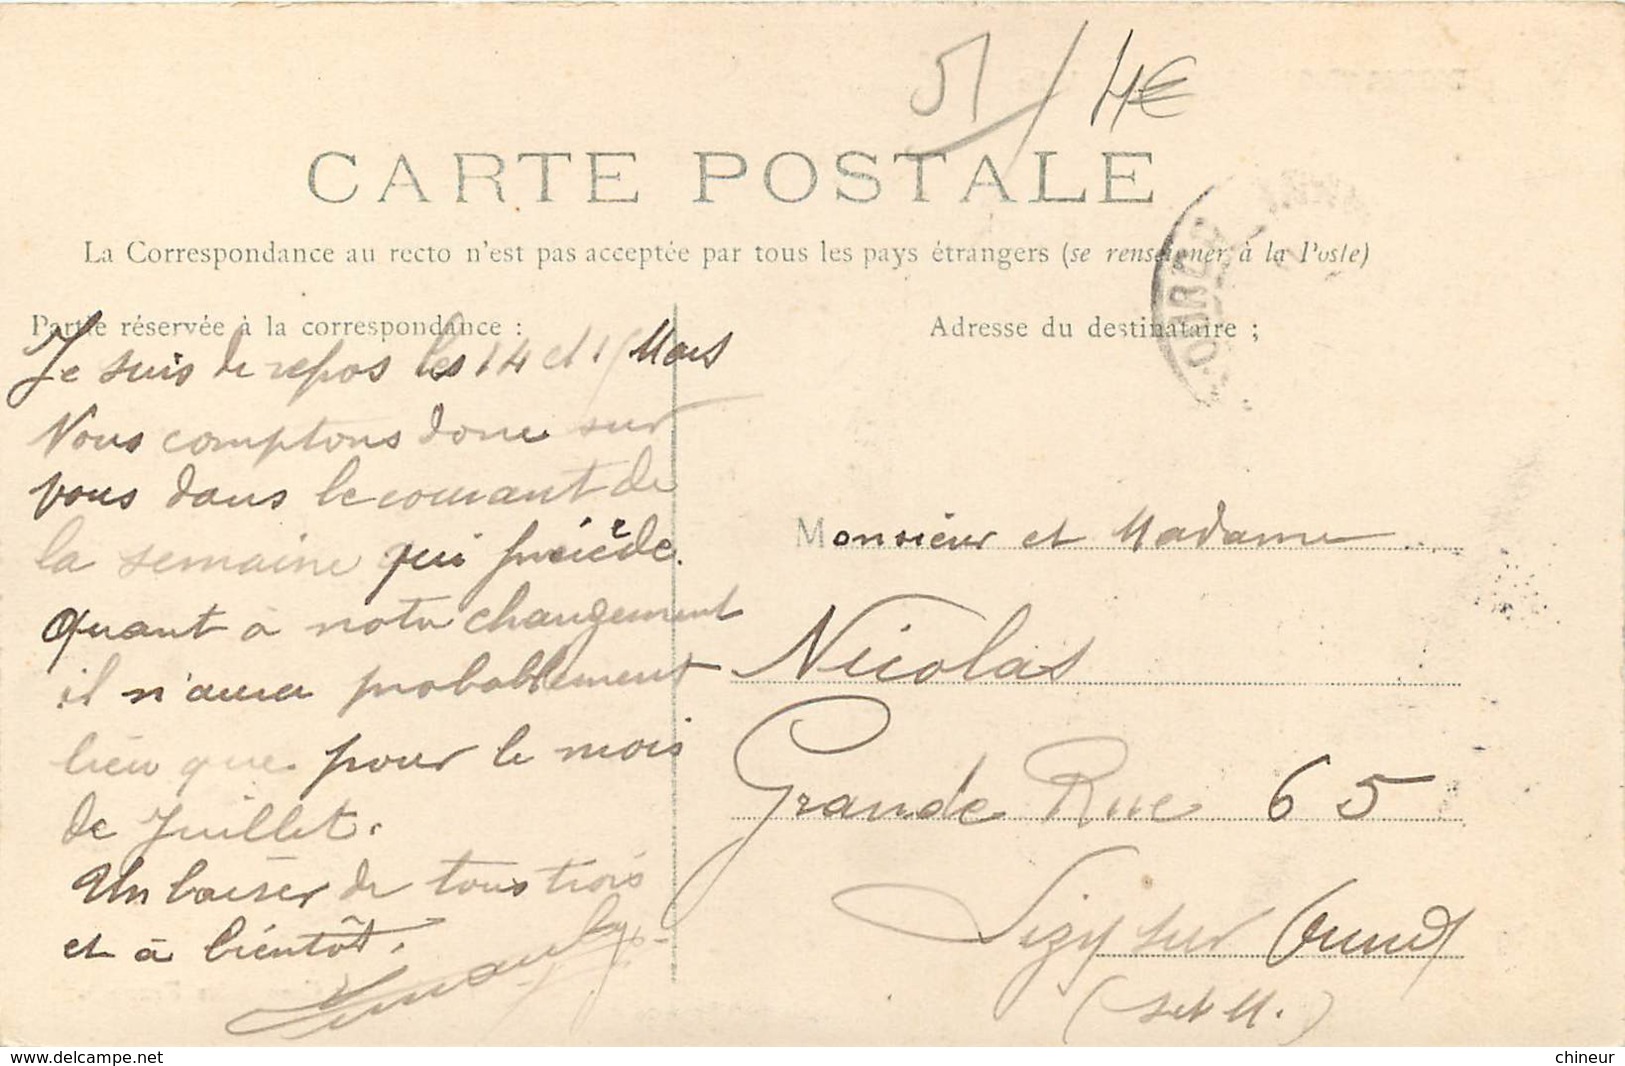 51 / 4€
CARTE POSTALE
La Correspondance au recto n'est pas acceptée par tous les pays étrangers (se renseigner à la Poste)
Partie réservée à la correspondance :
Je suis de repos les 14 et 15 Mars
Nous comptons donc sur
vous dans le courant de
la semaine qui précède.
Quant à notre changement
il n'aura probablement
lieu que pour le mois
de Juillet.
Un baiser de tous trois
et à bientôt.
Adresse du destinataire ;
Monsieur et Madame
Nicolas
Grande Rue 65
Lizy sur Ourcq
(S et M.)
delcampe.net
chineur